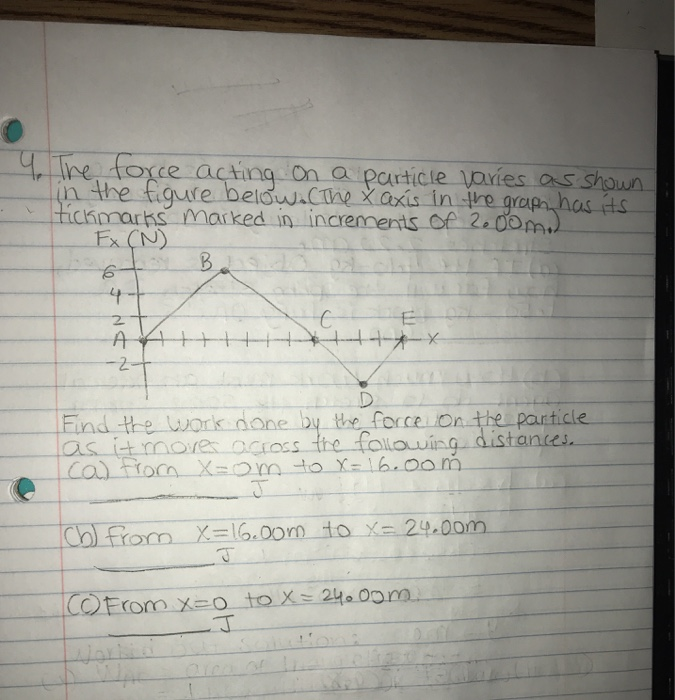 4. The force acting on a particle varies as shown
in the figure below. (The x axis in the graph has its
tickmarks marked in increments of 2.00m.)
Fx (N)
6
B
4
2
C
E
A
x
-2
D
Find the work done by the force on the particle
as it moves across the following distances.
(a) From x=0m to x=16.00m
J
(b) from x=16.00m to x= 24.00m
J
(c) From x=0 to x= 24.00m
J